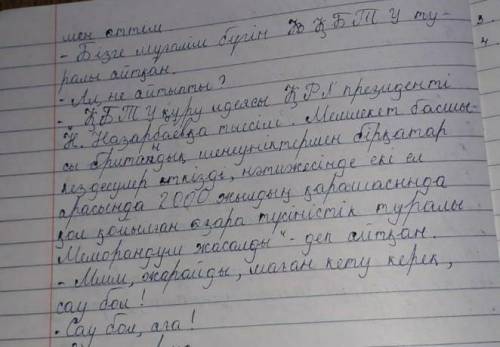 мен өттем
- Бізге мұғалім бүгін ҚБТУ ту-
ралы айтқан.
- Ал, не айтыпты?
- „ ҚБТУ құру идеясы ҚР-ң президенті
Н. Назарбаевқа тиесілі. Мемлекет басшы-
сы британдық шенеуніктермен бірқатар
кездесулер өткізді, нәтижесінде екі ел
арасында 2000 жылдың қарашасында
қол қойылған өзара түсіністік туралы
Меморандум жасалды" - деп айтқан.
- Ммм, жарайды, маған кету керек,
сау бол!
- Сау бол, аға!